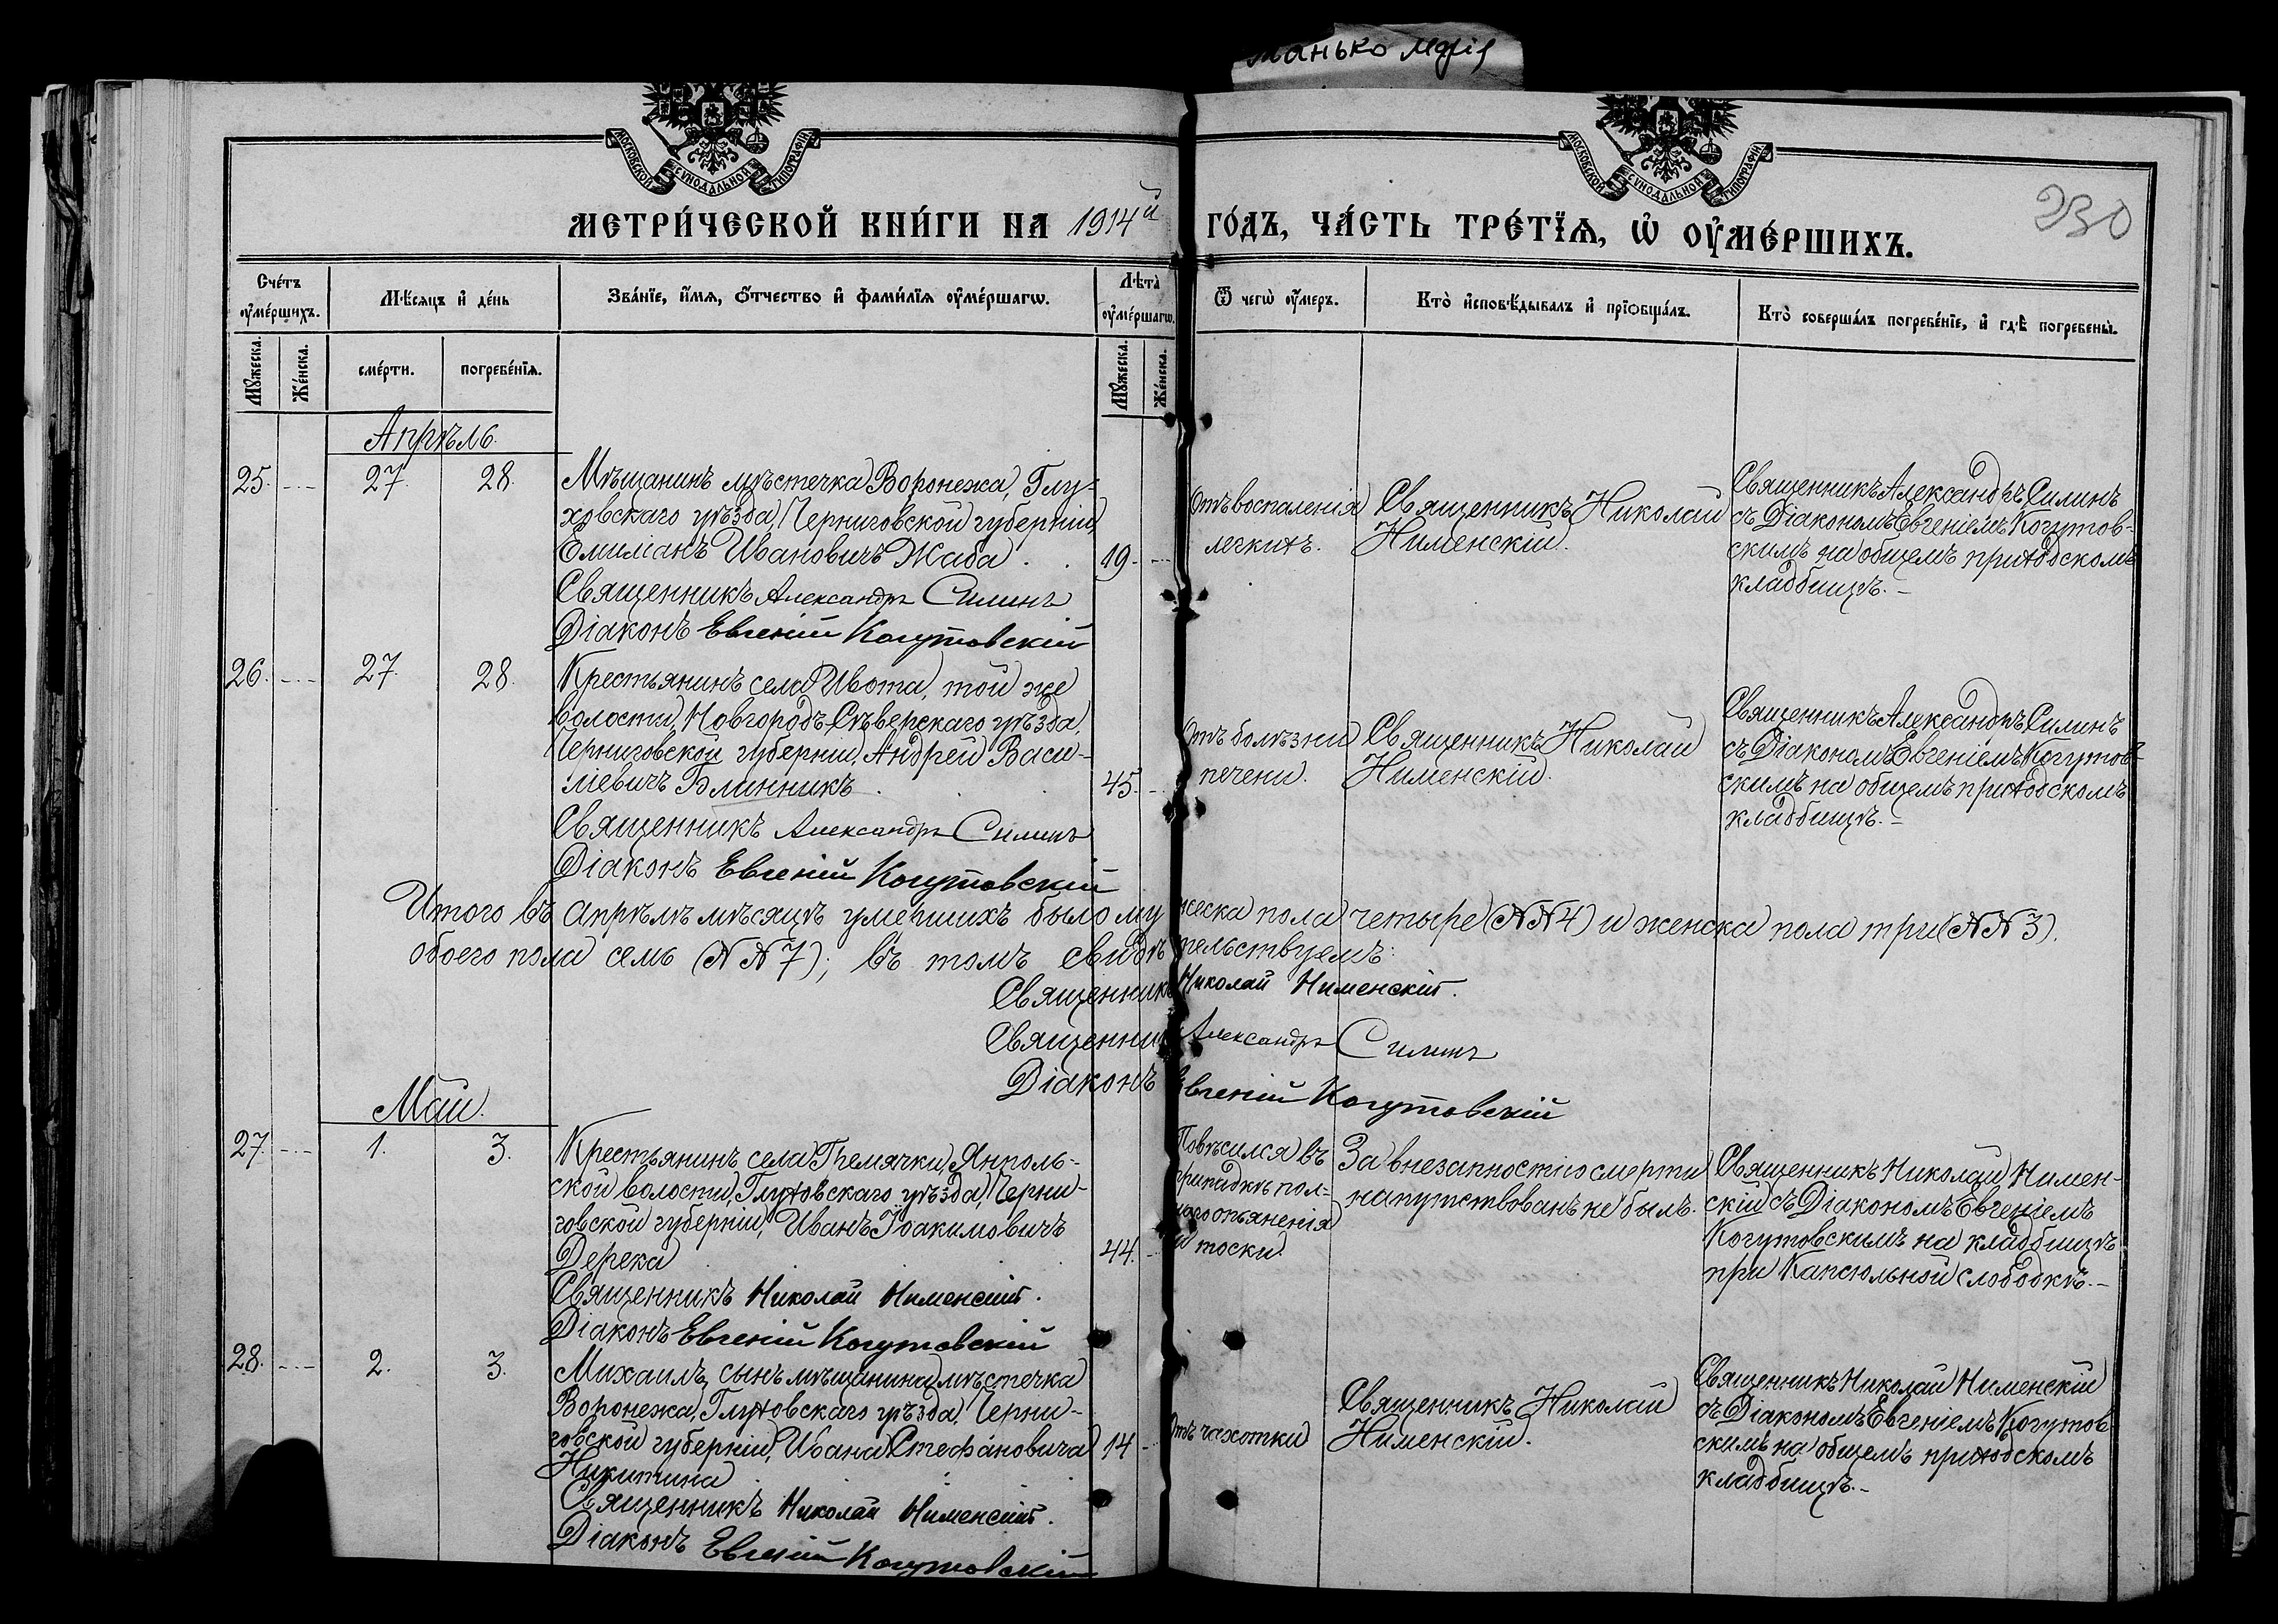 манько марія
МОСКОВСКОЙ СѴНОДАЛЬНОЙ ТИПОГРАФІИ
МОСКОВСКОЙ СѴНОДАЛЬНОЙ ТИПОГРАФІИ
230
МЕТРИ́ЧЕСКОЙ КНИ́ГИ НА 1914й ГО́ДЪ, ЧА́СТЬ ТРЕ́ТЇѦ, Ѡ҆ ОУ҆МЕ́РШИХЪ.
Сче́тъ оу҆ме́ршихъ.
Мѣ́сяцъ и҆ де́нь
Зва́нїе, и҆́мѧ, ѻ҆́тчество и҆ фами́лїѧ оу҆ме́ршагѡ.
Лѣта̀ оу҆ме́ршагѡ.
Ѿ чегѡ̀ оу҆́меръ.
Кто̀ и҆сповѣ́дывалъ и҆ прїѡбща́лъ.
Кто̀ соверша́лъ погребе́нїе, и҆ гдѣ̀ погребены̀.
Мꙋ́жеска.
Же́нска.
сме́рти.
погребе́нїѧ.
Мꙋ́жеска.
Же́нска.
Апрѣль.
25.
27.
28.
Мѣщанинъ мѣстечка Воронежа, Глу-
ховскаго уѣзда, Черниговской губерніи,
Емиліанъ Ивановичъ Жаба . .
19.
Священникъ Александръ Силинъ
Діаконъ Евгеній Когутовскій
Отъ воспаленія
легкихъ.
Священникъ Николай
Нименскій.
Священникъ Александръ Силинъ
съ Діакономъ Евгеніемъ Когутов-
скимъ на общемъ приходскомъ
кладбищѣ. –
26.
27.
28.
Крестьянинъ села Ивота, той же
волости, Новгородъ-Сѣверскаго уѣзда,
Черниговской губерніи, Андрей Васи-
ліевичъ Блинникъ .
45.
Священникъ Александръ Силинъ
Діаконъ Евгеній Когутовскій
Отъ болѣзни
печени.
Священникъ Николай
Нименскій.
Священникъ Александръ Силинъ
съ Діакономъ Евгеніемъ Когутов-
скимъ на общемъ приходскомъ
кладбищѣ. –
Итого въ апрѣлѣ мѣсяцѣ умершихъ было мужеска пола четыре (№№ 4) и женска пола три (№№ 3).
обоего пола семь (№№ 7); въ томъ свидѣтельствуемъ:
Священникъ Николай Нименскій.
Священникъ Александръ Силинъ
Діаконъ Евгеній Когутовскій
Май.
27.
1.
3.
Крестьянинъ села Гремячки, Ямполь-
ской волости, Глуховскаго уѣзда, Черни-
говской губерніи, Иванъ Іоакимовичъ
Дерека
44.
Священникъ Николай Нименскій.
Діаконъ Евгеній Когутовскій
Повѣсился въ
припадкѣ пол-
наго опьяненія
и тоски.
За внезапностію смерти
напутствованъ не былъ.
Священникъ Николай Нимен-
скій съ Діакономъ Евгеніемъ
Когутовскимъ на кладбищѣ
при Капсюльной слободкѣ. –
28.
2.
3.
Михаилъ, сынъ мѣщанина мѣстечка
Воронежа, Глуховскаго уѣзда, Черни-
говской губерніи, Ивана Стефановича
Никитина
14
Священникъ Николай Нименскій.
Діаконъ Евгеній Когутовскій
Отъ чахотки
Священникъ Николай
Нименскій.
Священникъ Николай Нименскій
съ Діакономъ Евгеніемъ Когутов
скимъ на общемъ приходскомъ
кладбищѣ. –